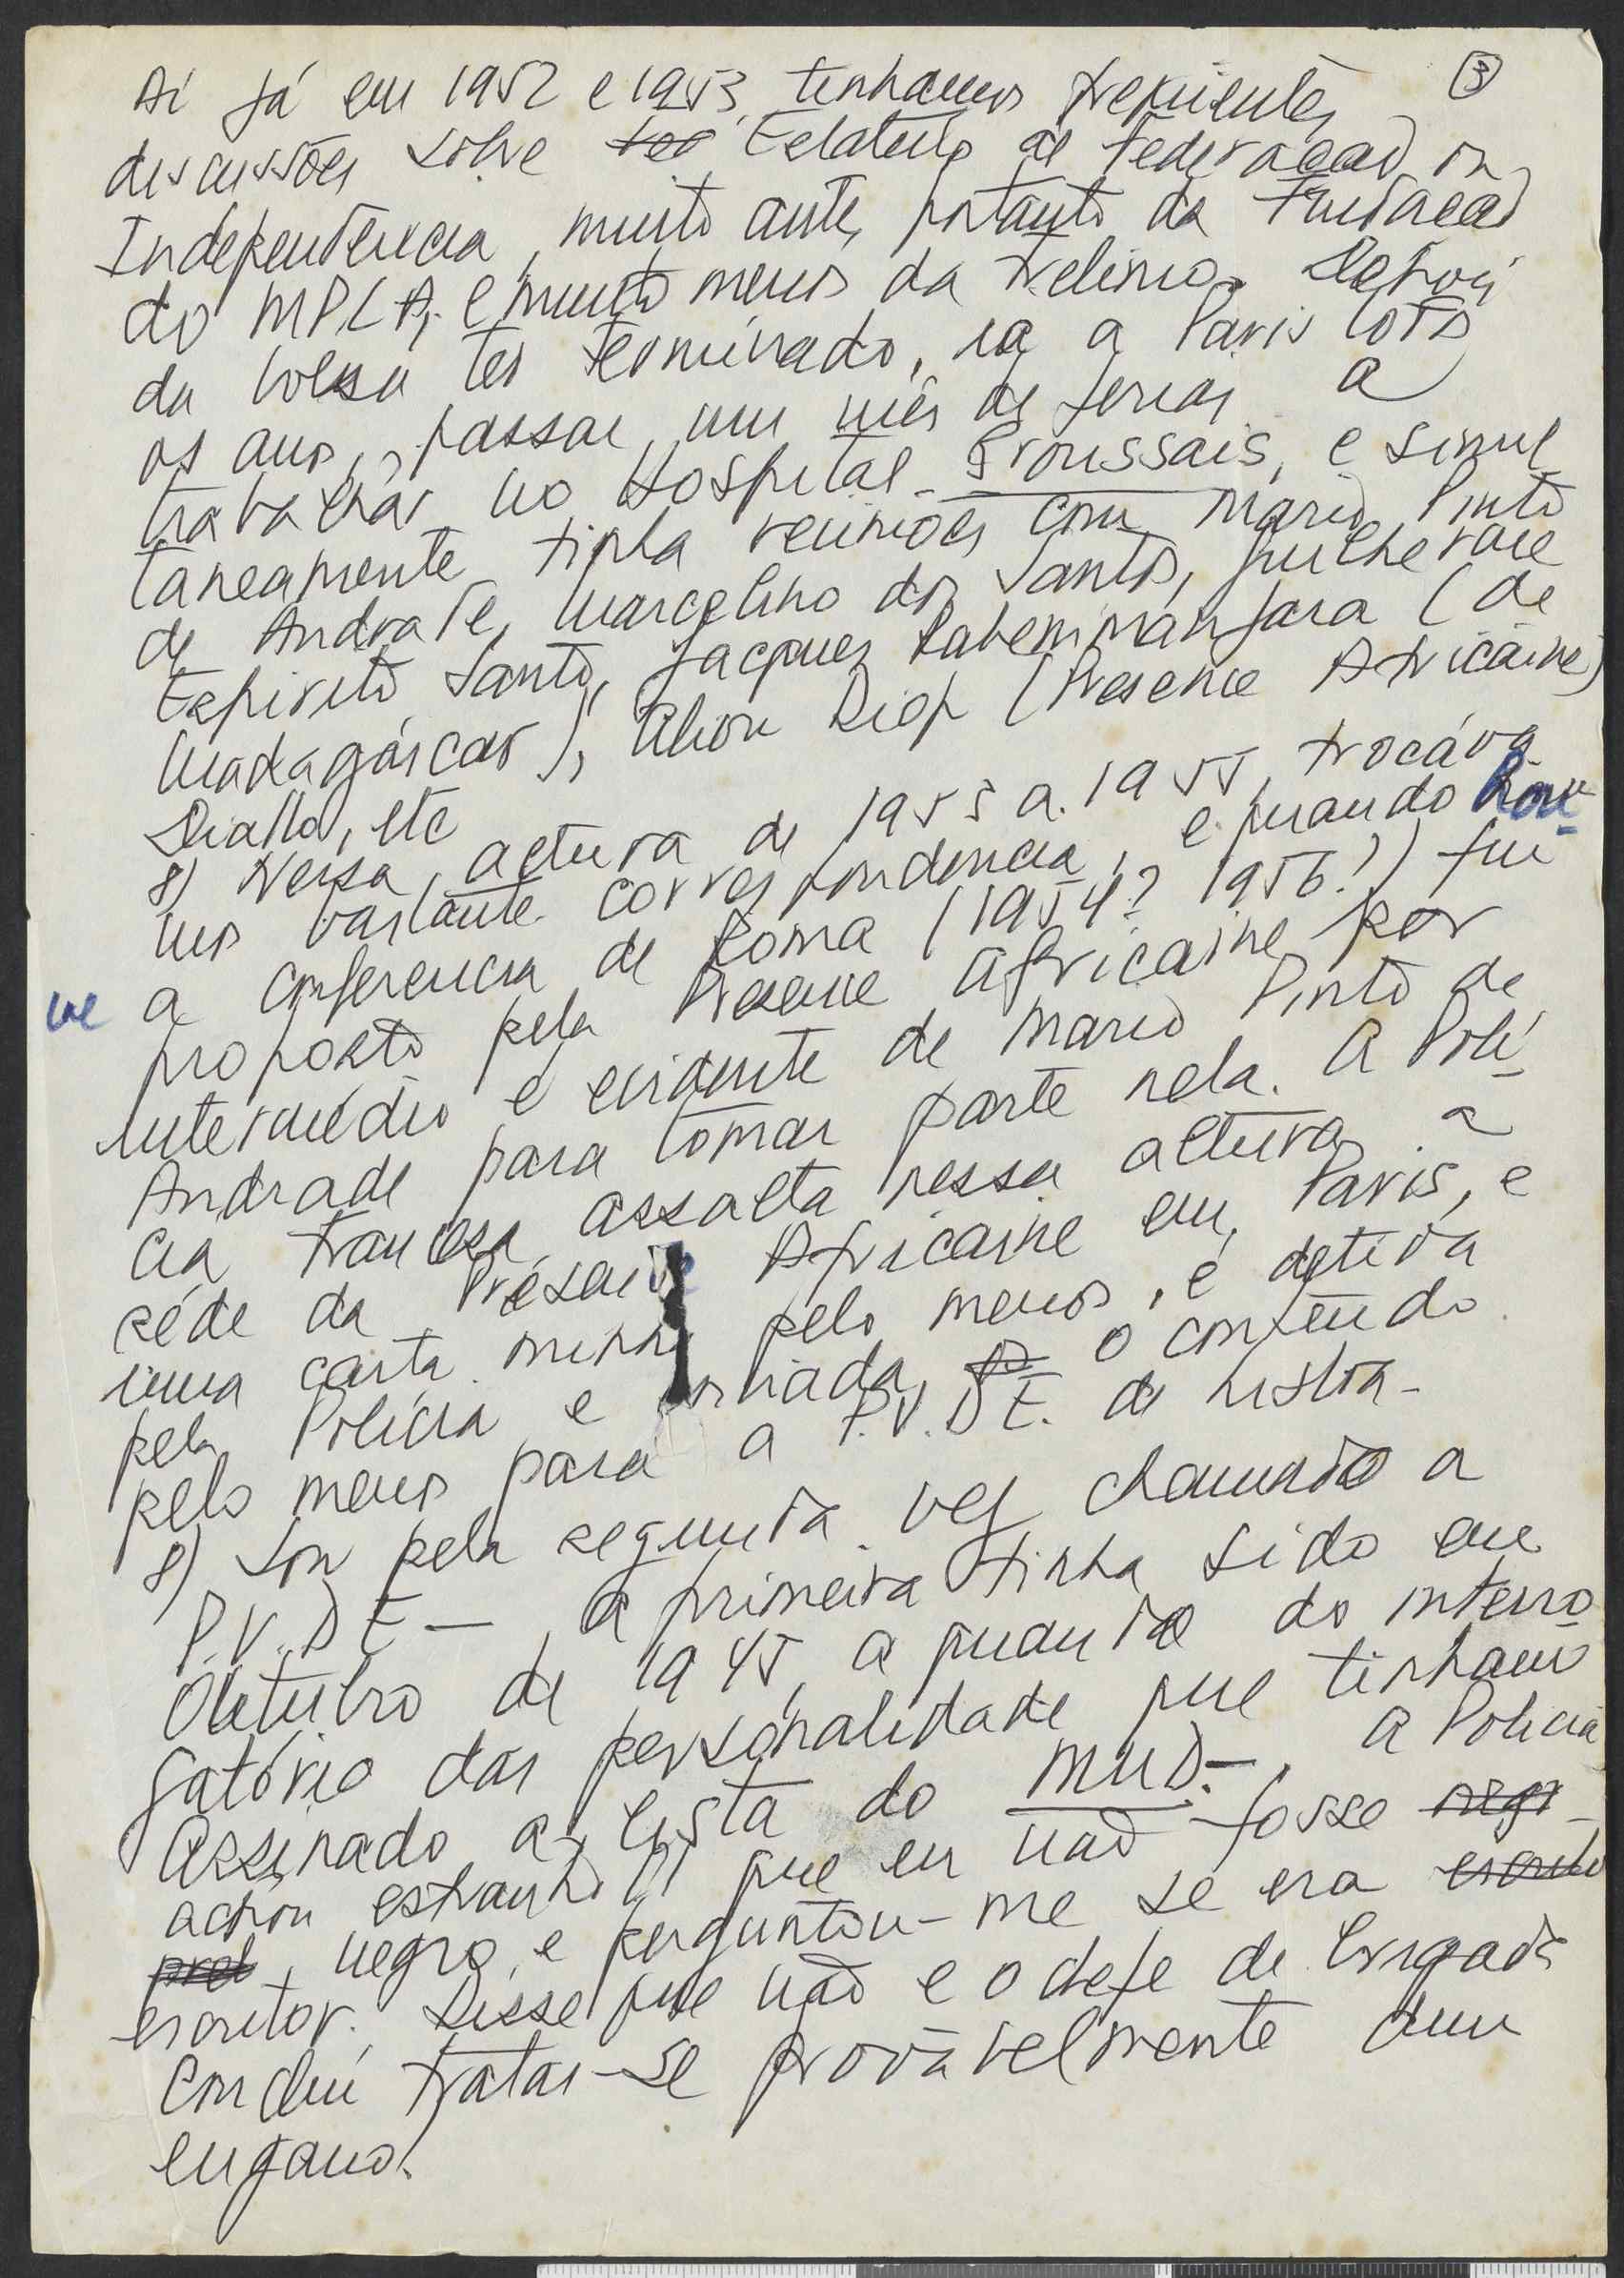 3
Aí já em 1952 e 1953, tinhamos frequentes
discussões sobre Estatuto de Federacao ou
Independência, muito antes, portanto da Fundacao
do MPLA, e muito menos da Frelimo. Depois
da bolsa ter terminado, ia a Paris todos
os anos, passar um mês de ferias a
trabalhar no Hospital Broussais, e simul
taneamente tinha reuniões com Mario Pinto
de Andrade, Marcelino dos Santos, Guilherme
Espirito Santo, Jacques Rabemmananjara (de
Madagáscar), Alion Diop (Presence Africaine)
Diallo, etc
8) Nessa altura de 1953 a 1955, trocáva
mos bastante correspondencia, e quando hou-
ve a conferencia de Roma (1954? 1956?) fui
proposto pela Presence Africaine por
intermédio é evidente de Mario Pinto de
Andrade para tomar parte nela. A Polí-
cia francesa assalta nessa altura a
séde da Présence Africaine em Paris, e
uma carta minha pelo menos, é detida
pela Polícia e enviada, o conteúdo
pelo menos para a P.V.D.E. de Lisboa.
8) Sou pela segunda vez chamado a
P.V.D E — a primeira tinha sido em
Outubro de 1945, a quando do interro
gatório das personalidade que tinham
assinado a lista do MUD. — A Polícia
achou estranho que eu não fosse negr
pret negro, e perguntou-me se era
escritor. Disse que não e o chefe de brigada
concluí tratar-se provávelmente dum
engano.